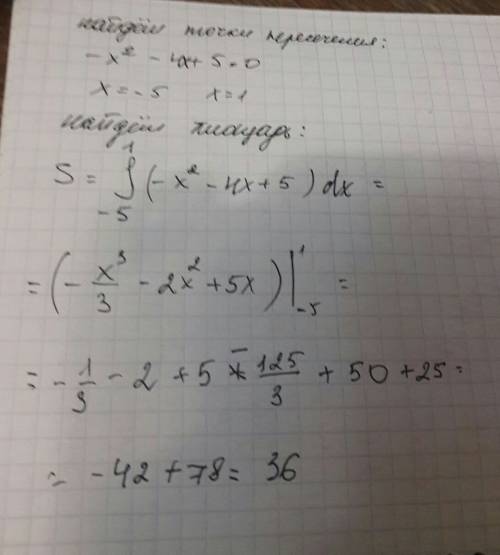 найдём точки пересечения:
-x² - 4x + 5 = 0
x = -5 x = 1
найдём площадь:
S = ∫₋₅¹ (-x² - 4x + 5) dx =
= (- x³/3 - 2x² + 5x) |₋₅¹ =
= - 1/3 - 2 + 5 - 125/3 + 50 + 25 =
= -42 + 78 = 36